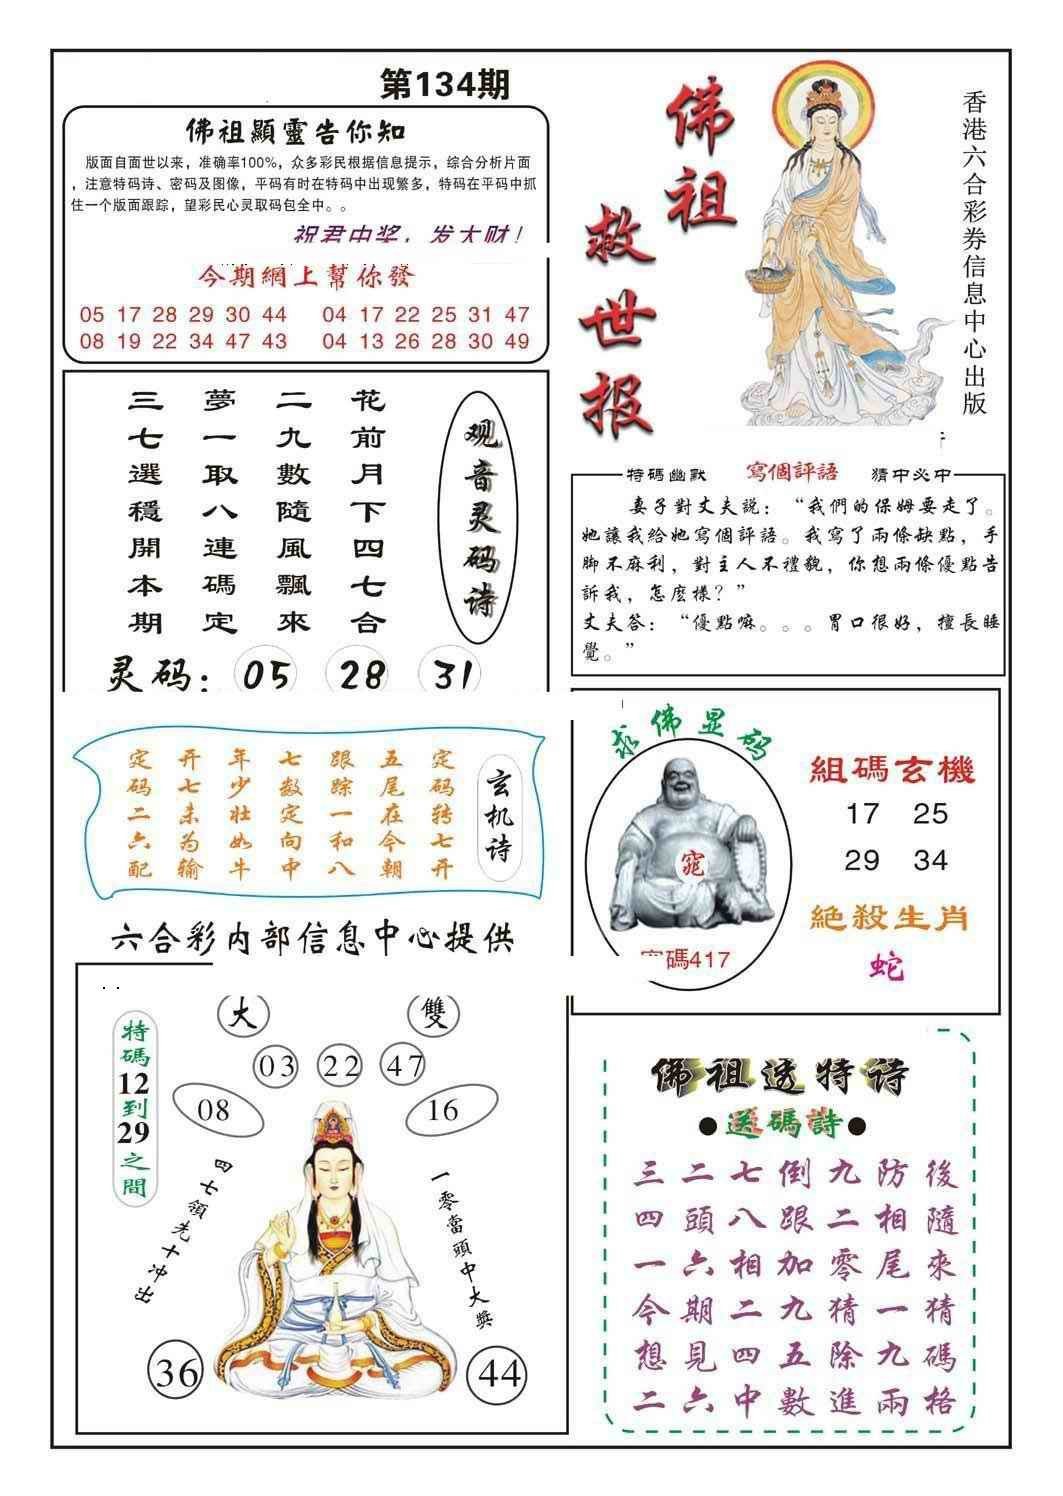 第134期
佛祖顯靈告你知
版面自面世以来，准确率100%，众多彩民根据信息提示，综合分析片面
，注意特码诗、密码及图像，平码有时在特码中出现繁多，特码在平码中抓
住一个版面跟踪，望彩民心灵取码包全中。。
祝君中奖，发大财！
今期網上幫你發
05 17 28 29 30 44 04 17 22 25 31 47
08 19 22 34 47 43 04 13 26 28 30 49
佛祖
救世报
香港六合彩券信息中心出版
观音灵码诗
花前月下四七合
二九數隨風飄來
夢一取八連碼定
三七選穩開本期
灵码：05 28 31
特碼幽默 寫個評語 猜中必中
妻子對丈夫説：“我們的保姆要走了。
她讓我給她寫個評語。我寫了兩條缺點，手
脚不麻利，對主人不禮貌，你想兩條優點告
訴我，怎麽樣？”
丈夫答：“優點嘛。。。胃口很好，擅長睡
覺。”
玄机诗
定码转七开
五尾在今朝
跟踪一和八
七数定向中
年少壮如牛
开七未为输
定码二六配
求佛显码
碼417
組碼玄機
17 25
29 34
絕殺生肖
蛇
六合彩内部信息中心提供
特碼12到29之間
大 雙
03 22 47
08 16
四七領先十冲出
一零當頭中大獎
36 44
佛祖透特诗
●送碼詩●
三二七倒九防後
四頭八跟二相隨
一六相加零尾來
今期二九猜一猜
想見四五除九碼
二六中數進兩格